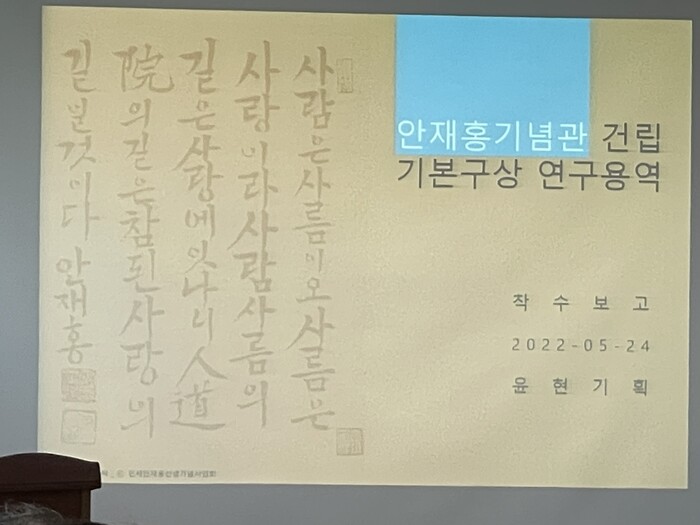 사람은사름이오사름은
사랑이라사람사름의
길은사랑에잇나니人道
院의길은참된사랑의
길일것이다 안재홍
안재홍기념관 건립
기본구상 연구용역
착수보고
2022-05-24
윤현기획